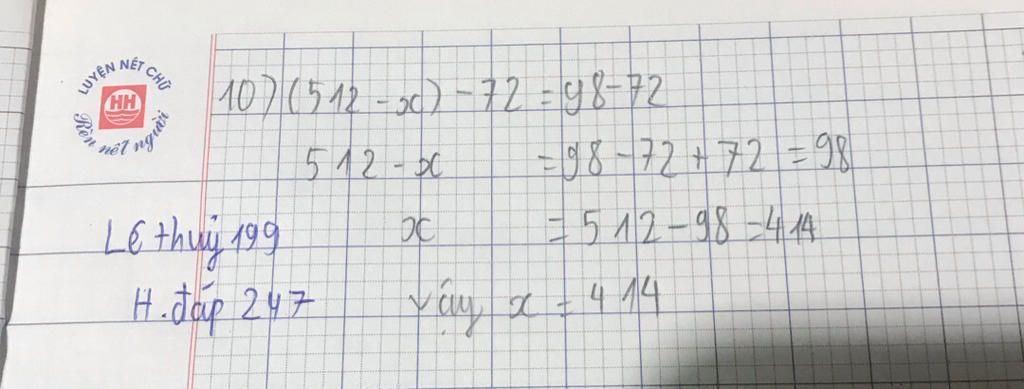 LUYỆN NÉT CHỮ
HH
Rèn nết người
10) (512 - x) - 72 = 98 - 72
512 - x = 98 - 72 + 72 = 98
x = 512 - 98 = 414
Vậy x = 414
Lê thuỷ 199
H. đáp 247